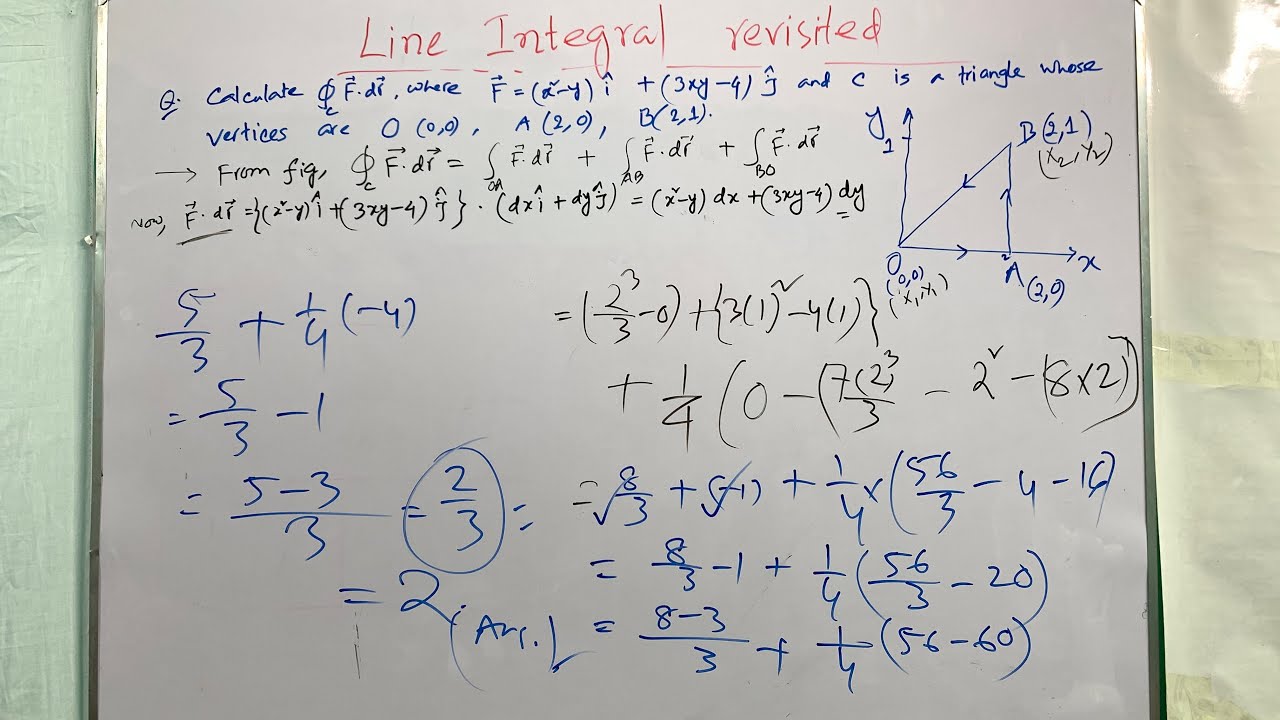 Line Integral revisited
Q. Calculate ∮_C F⃗·dr⃗, where F⃗ = (x²-y) î + (3xy-4) ĵ and C is a triangle whose
vertices are O (0,0), A (2,0), B(2,1).
→ From fig, ∮_C F⃗·dr⃗ = ∫_OA F⃗·dr⃗ + ∫_AB F⃗·dr⃗ + ∫_BO F⃗·dr⃗
Now, F⃗·dr⃗ = {(x²-y) î + (3xy-4) ĵ} · (dx î + dy ĵ) = (x²-y) dx + (3xy-4) dy
Y
1
B(2,1)
(x₂, y₂)
O
(0,0)
(x₁, y₁)
2
A (2,0)
x
= (2³/3 - 0) + {3(1)² - 4(1)}
+ 1/4 (0 - (7(2)³/3 - 2² - (8×2))
= 8/3 + (-1) + 1/4 × (56/3 - 4 - 16)
= 8/3 - 1 + 1/4 (56/3 - 20)
= 8-3/3 + 1/4 (56-60)
5/3 + 1/4 (-4)
= 5/3 - 1
= 5-3/3 = 2/3 =
= 2 (Ans.)